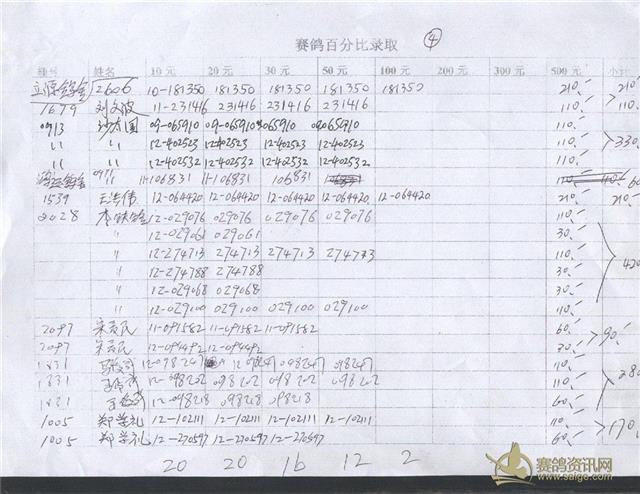 赛鸽百分比录取 ④
棚号 姓名 10元 20元 30元 50元 100元 200元 300元 500元 小计
2606 10-181350 181350 181350 181350 181350 210 210
1679 刘文波 11-231416 231416 231416 231416 110 110
0913 09-065910 09-065910 065910 065910 110 330
〃 〃 12-402523 12-402523 402523 402523 110
〃 〃 12-402532 402532 402532 402532 110
〃 11-106831 11-106831 106831
1539 王洪伟 12-064420 12-064420 12-064420 12-064420 12-064420 210 210
2028 李铁 12-029076 029076 029076 029076 110
〃 12-029061 029061 30
〃 12-274713 274713 274713 274713 110
〃 12-274788 274788 30
〃 12-029068 029068 30
〃 12-029100 029100 029100 029100 110
2097 宋秀民 11-091582 11-091582 11-091582 60 90
2097 宋秀民 12-094492 12-094492 30
1831 12-098247 12-098247 098247 098247 110
1831 12-098202 098202 098202 098202 110 280
1831 12-098218 098218 098218 60
1005 郑学礼 12-102111 12-102111 12-102111 12-102111 110 170
1005 郑学礼 12-270597 12-270597 12-270597 60
20 20 16 12 2
赛鸽资讯网
www.saige.com